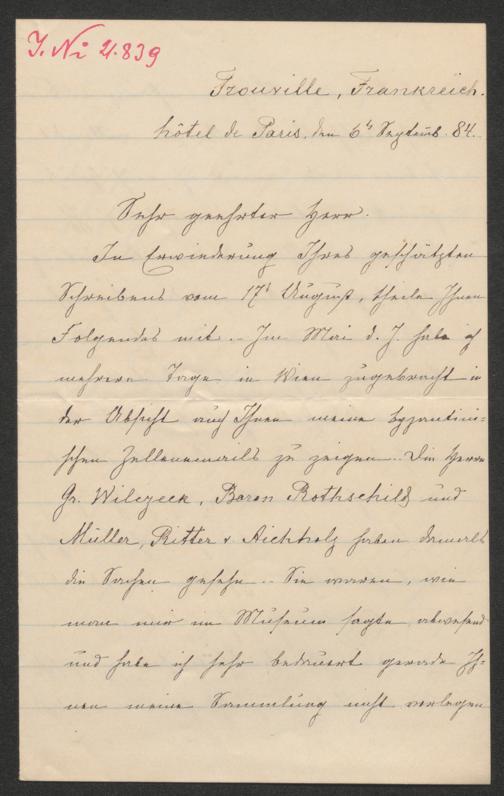 J. Nr 4.839
Trouville, Frankreich.
hôtel de Paris, den 6t Septemb. 84.
Sehr geehrter Herr.
In Erwiederung Ihres geschätzten
Schreibens vom 17t August, theile Ihnen
Folgendes mit.. Im Mai d. J. habe ich
mehrere Tage in Wien zugebracht in
der Absicht auch Ihnen meine byzantini=
schen Zellenemails zu zeigen.. Die Herrn
Gr. Wilczeck, Baron Rothschild und
Müller, Ritter v Aichholz haben damals
die Sachen gesehn.. Sie waren, wie
man mir im Museum sagte, abwesend
und habe ich sehr bedauert gerade Ih=
nen meine Sammlung nicht vorlegen